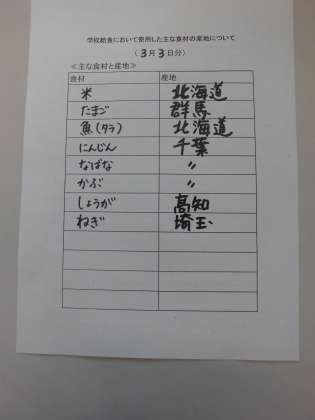 学校給食において使用した主な食材の産地について
（3月3日分）
≪主な食材と産地≫
食材 産地
米 北海道
たまご 群馬
魚（タラ） 北海道
にんじん 千葉
なばな 〃
かぶ 〃
しょうが 高知
ねぎ 埼玉